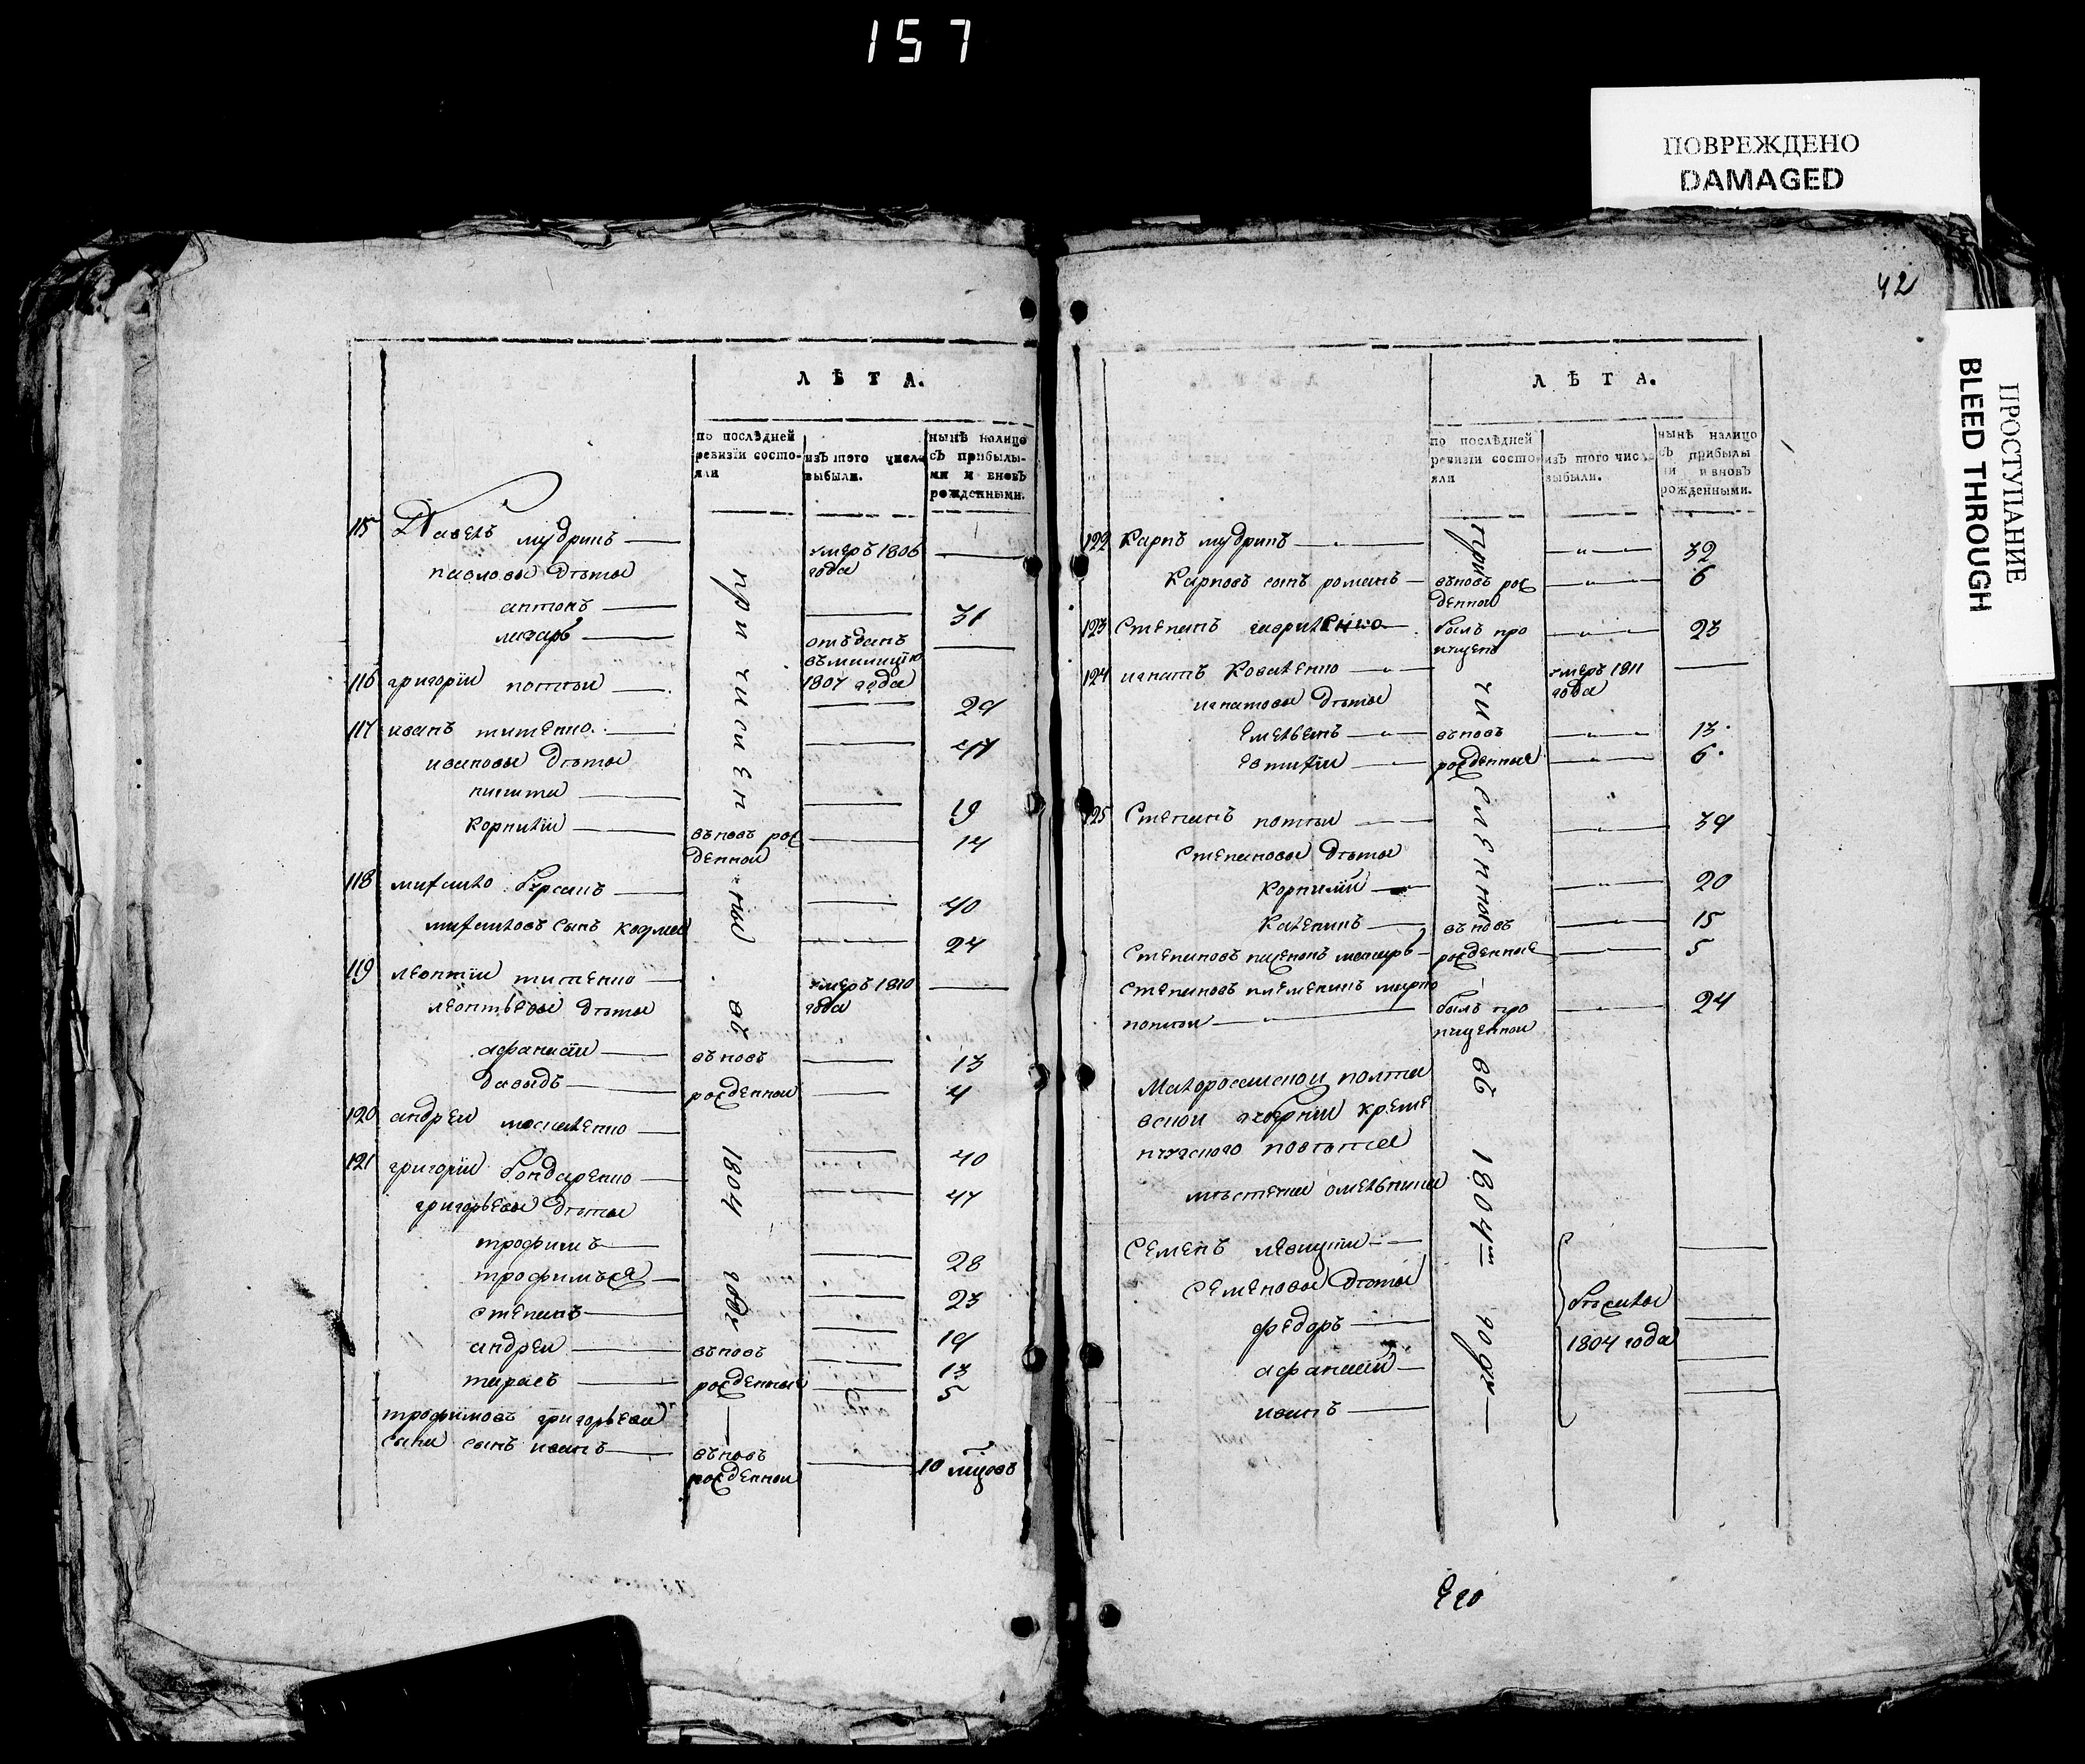 157
ПОВРЕЖДЕНО
DAMAGED
ПРОСТУПАНИЕ
BLEED THROUGH
ЛѢТА.
по послѣдней ревизїи состояли
изъ того числа выбыли.
нынѣ налицо съ прибылыми и вновь рожденными.
115 Павелъ мудринъ умеръ 1806 года
павловы дѣти
антонъ 31
лазарь отъданъ въ милицїю 1807 года
116 григорїи 29
117 иванъ титенко 47
ивановы дѣти
никита 19
корнилїи въновъ рожденнои 14
118 михаило бурсакъ 40
михаиловъ сынъ козма 24
119 леонтїи титенко умеръ 1810 года
леонтьевы дѣти
афанасїи въновъ 13
давыдъ рожденнои 4
120 андреи москаленко 40
121 григорїи бондаренко 47
григорьевы дѣти
трофимъ 28
трофимъ 2й 23
степанъ 19
андреи въновъ 13
тарасъ рожденные 5
трофимовъ григорьева
сына сынъ иванъ въновъ рожденнои 10 мцовъ
причисленные въ 1804 году
42
ЛѢТА.
по послѣдней ревизїи состояли
изъ того числа выбыли.
нынѣ налицо съ прибылыми и вновь рожденными.
122 Карпъ мудринъ 32
Карповъ сынъ романъ въновъ рожденнои 6
123 Степанъ гавриленко былъ пропущенъ 23
124 игнатъ Коваленко умеръ 1811 года
игнатовы дѣти
Емельянъ въновъ 13
Евтихїи рожденные 6
125 Степанъ 39
Степановы дѣти
Корнилїй 20
Каленикъ въновъ 15
Степановъ макаръ рожденные 5
Степановъ племяникъ марко
былъ пропущеннои 24
Малоросїискои полта
вскои губернїи креме
нчугского повѣта
мѣстечка омельника
Семенъ
Семеновы дѣти
федоръ
афанасїй
иванъ
бѣжалы
1804 года
причисленные въ 1804м году